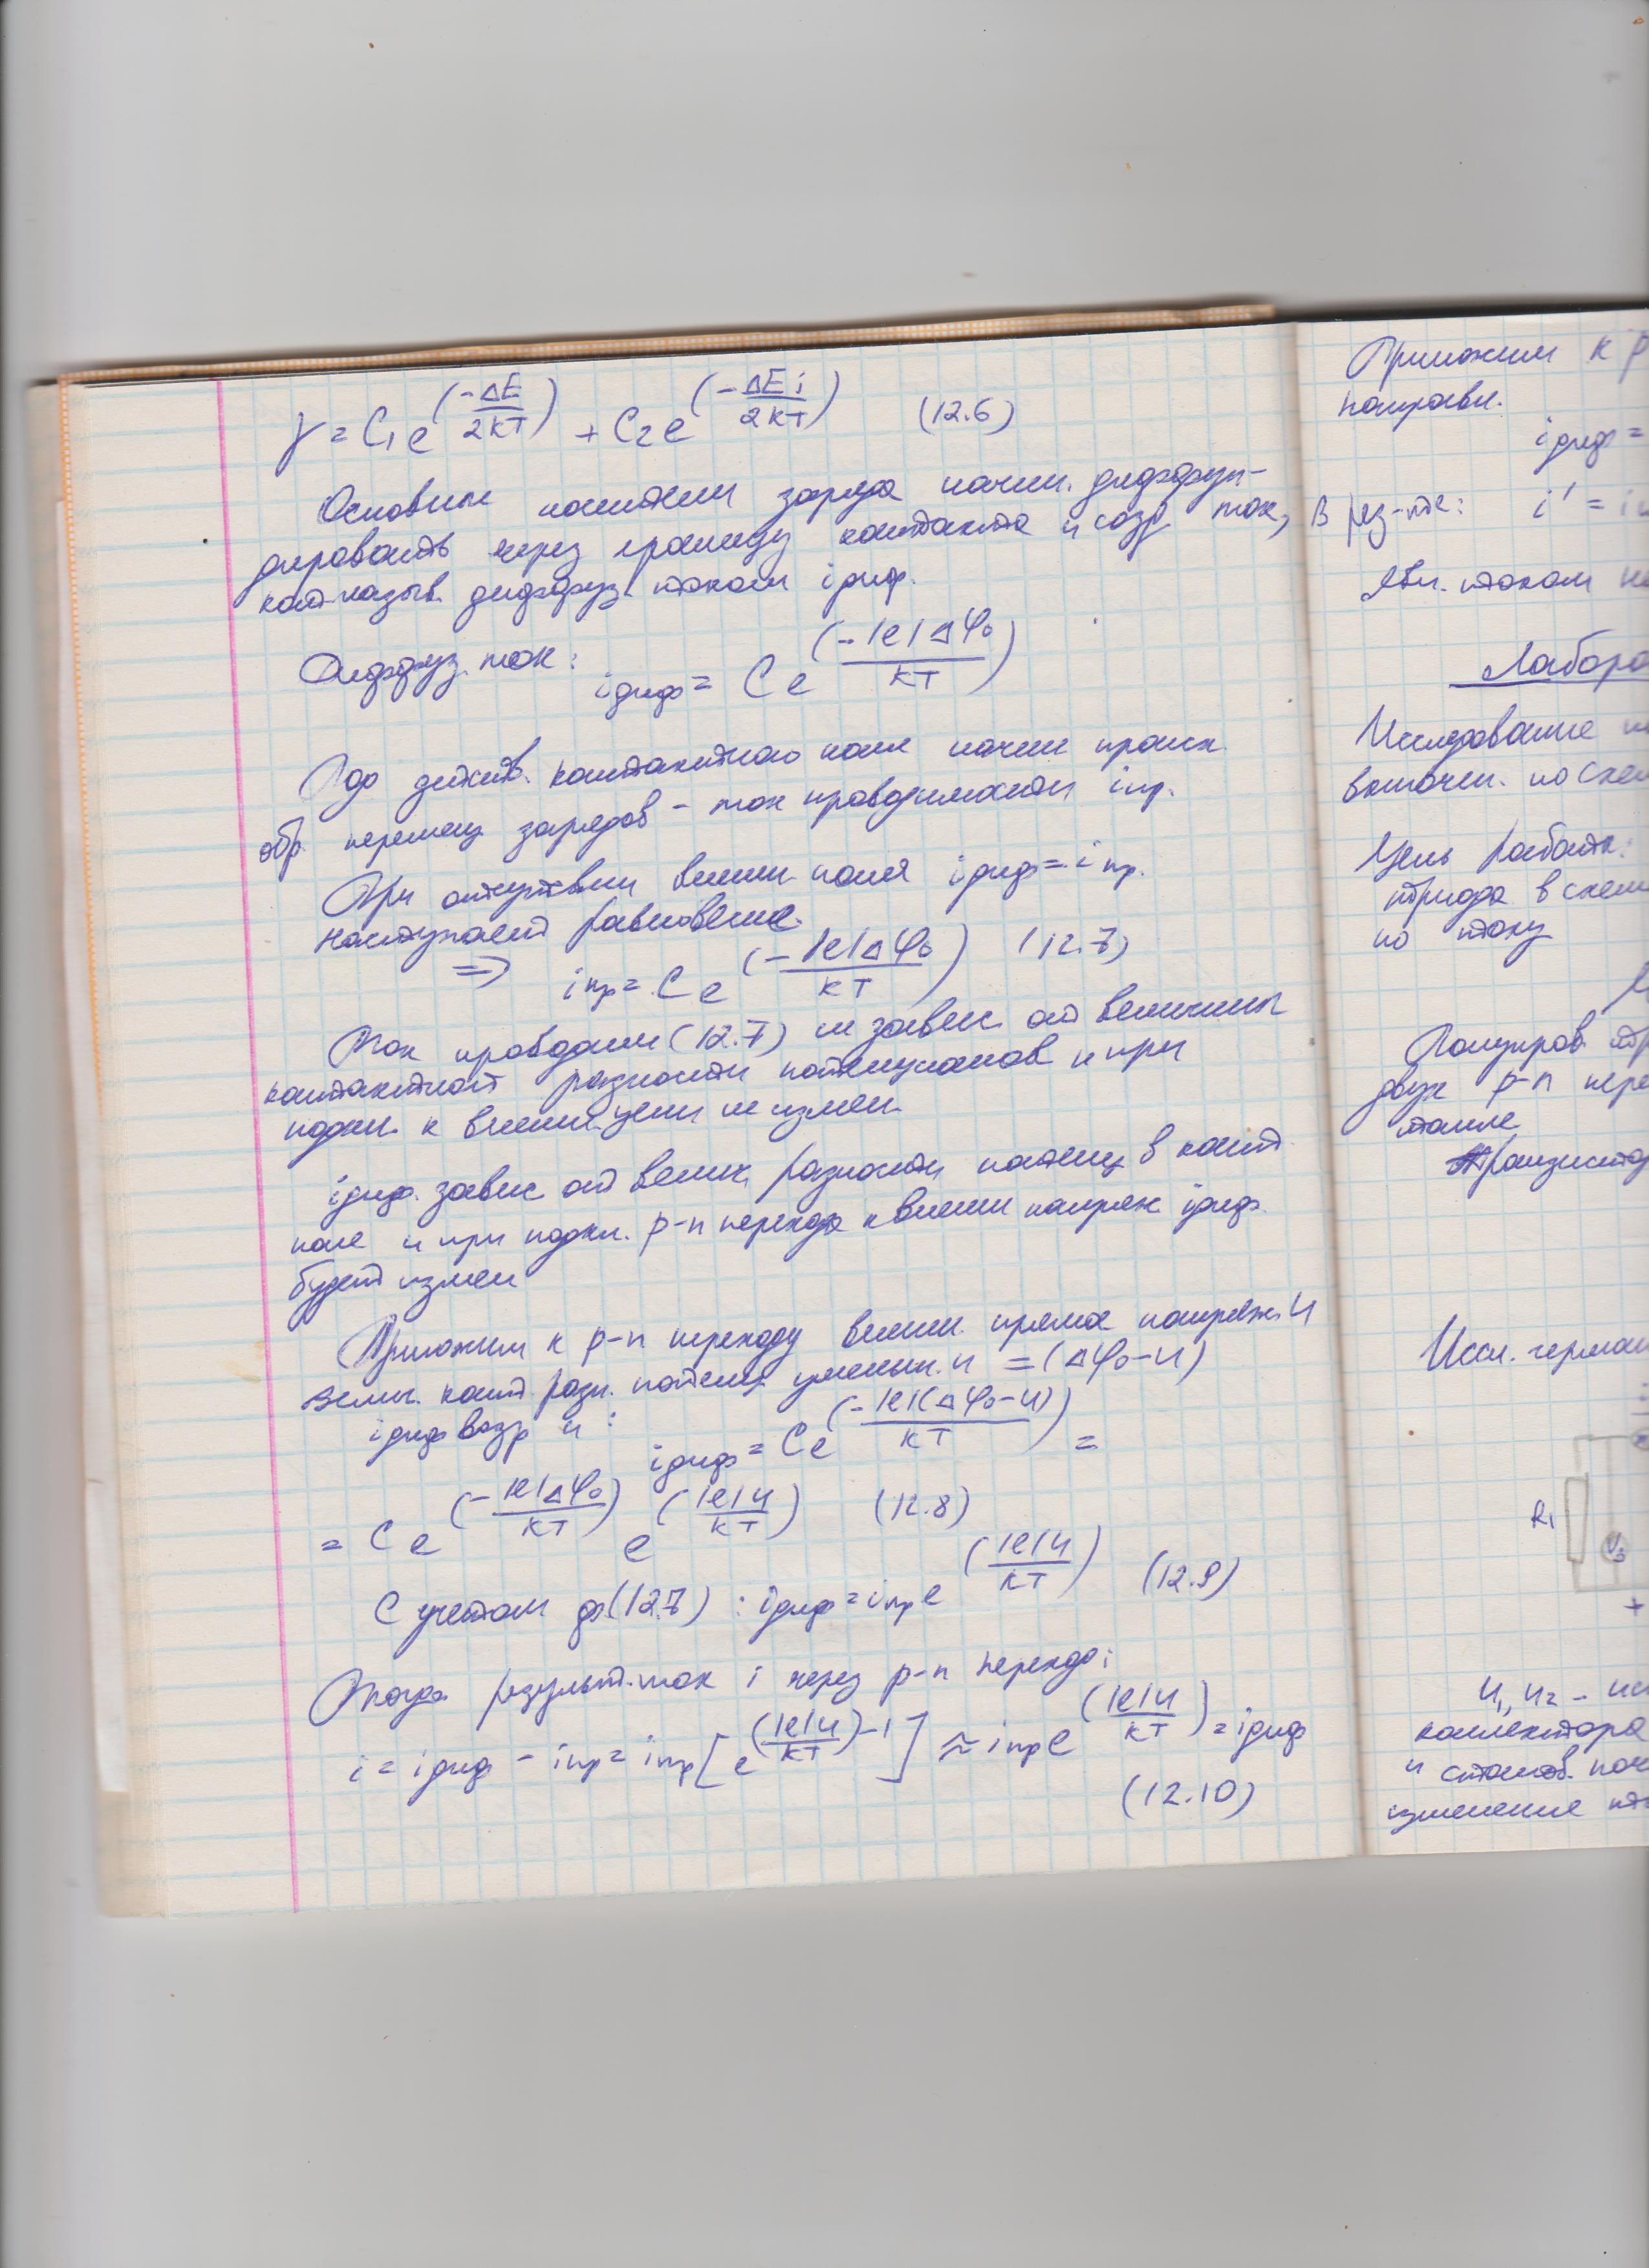 γ = C₁e^(-ΔE/2кT) + C₂e^(-ΔEi/2кT) (12.6)
Основные носители заряда начин. диффун-
дировать через границу контакта и созд ток,
кот. назыв. диффуз. током iдиф.
Диффуз. ток:
iдиф = Ce^(-|e|Δφ₀/кT)
Под действ. контактного поля начин происх.
обр. перемещ зарядов – ток проводимости iпр.
При отсутствии внешн. поля iдиф = iпр.
наступает равновесие.
=> iпр = Ce^(-|e|Δφ₀/кT) (12.7)
Ток проводим (12.7) не завис. от величины
контактной разности потенциалов и при
подкл. к внешн. цепи не измен.
iдиф. завис от велич. разности потенц в конт.
поле и при подкл. p-n перехода к внешн напряж iдиф.
будет измен
Приложим к p-n переходу внешн. прямое напряж. U
конт. разн. потенц. уменьш. и = (Δφ₀-U)
iдиф возр и :
iдиф = Ce^(-|e|(Δφ₀-U)/кT) =
= Ce^(-|e|Δφ₀/кT) e^(|e|U/кT) (12.8)
С учетом ф(12.7) : iдиф = iпр e^(|e|U/кT) (12.9)
Тогда результ. ток i через p-n переход:
i = iдиф - iпр = iпр[e^(|e|U/кT) -1] ≈ iпр e^(|e|U/кT) = iдиф
(12.10)
Приложим к p
направл.
iдиф =
В рез-те: i' = i
Явл. током
Лабора
Исследование
включен. по схем
Цель работы:
триода в схем
по току
Полупров.
двух p-n пере
Транзистор
Иссл. герман
R₁
V₃
+
U₁, U₂ –
коллектора
и
изменение